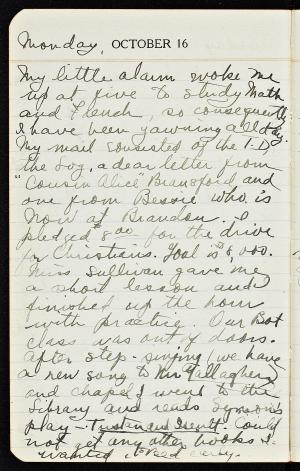 Monday, OCTOBER 16
My little alarm woke me
up at five to study Math
and French, so consequently
I have been yawning all day.
My mail consisted of the T-D
the Sog, a dear letter from
"Cousin Alice" Bransford and
one from Bessie who is
now at Brandon. I
pledged $8.00 for the drive
for Christians. Goal is $8,000.
Miss Sullivan gave me
a short lesson and I
finished up the hour
with practice. Our Bot
class was out of doors.
After step-singing (we have
a new song to Mr Gallagher)
and chapel, I went to the
library and read Symons's
play - Tristan and Iseult. Could
not get any other books I
wanted to read early.